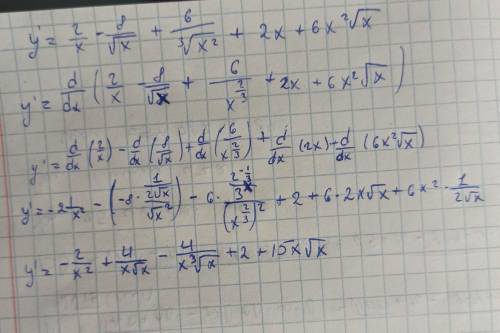 y' = 2/x - 8/√x + 6/∛x² + 2x + 6x²√x
y' = d/dx (2/x - 8/√x + 6/x^(2/3) + 2x + 6x²√x)
y' = d/dx (2/x) - d/dx (8/√x) + d/dx (6/x^(2/3)) + d/dx (2x) + d/dx (6x²√x)
y' = -2 1/x² - (-8 · (1/(2√x))/√x²) - 6 · (2/3 x^(-1/3))/(x^(2/3))² + 2 + 6 · 2x√x + 6x² · 1/(2√x)
y' = -2/x² + 4/(x√x) - 4/(x∛x) + 2 + 15x√x